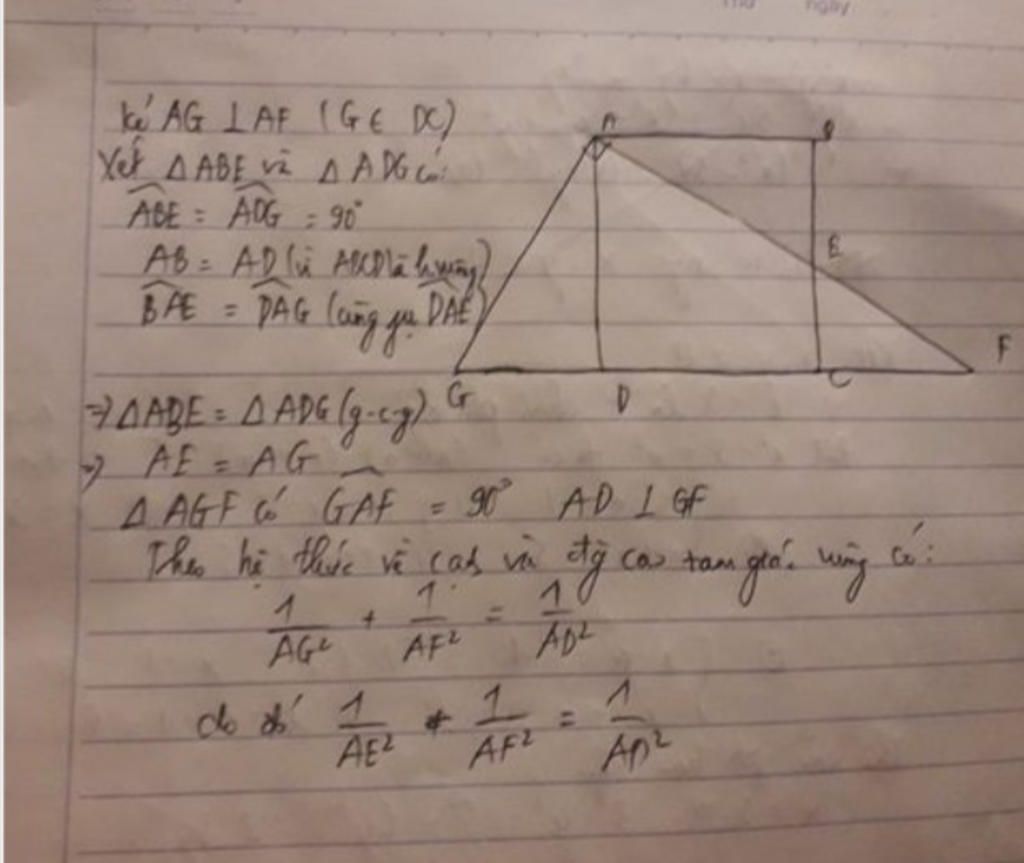 Thứ ngày
kẻ AG ⊥ AF (G ∈ DC)
Xét △ABE và △ADG có:
\widehat{ABE} = \widehat{ADG} = 90°
AB = AD (vì ABCD là h.vuông)
\widehat{BAE} = \widehat{DAG} (cùng phụ \widehat{DAE})
⇒ △ABE = △ADG (g-c-g)
⇒ AE = AG
△AGF có \widehat{GAF} = 90° AD ⊥ GF
Theo hệ thức về cạh và đg cao tam giác vuông có:
1/AG² + 1/AF² = 1/AD²
do đó 1/AE² + 1/AF² = 1/AD²
A B
E
F
G D C